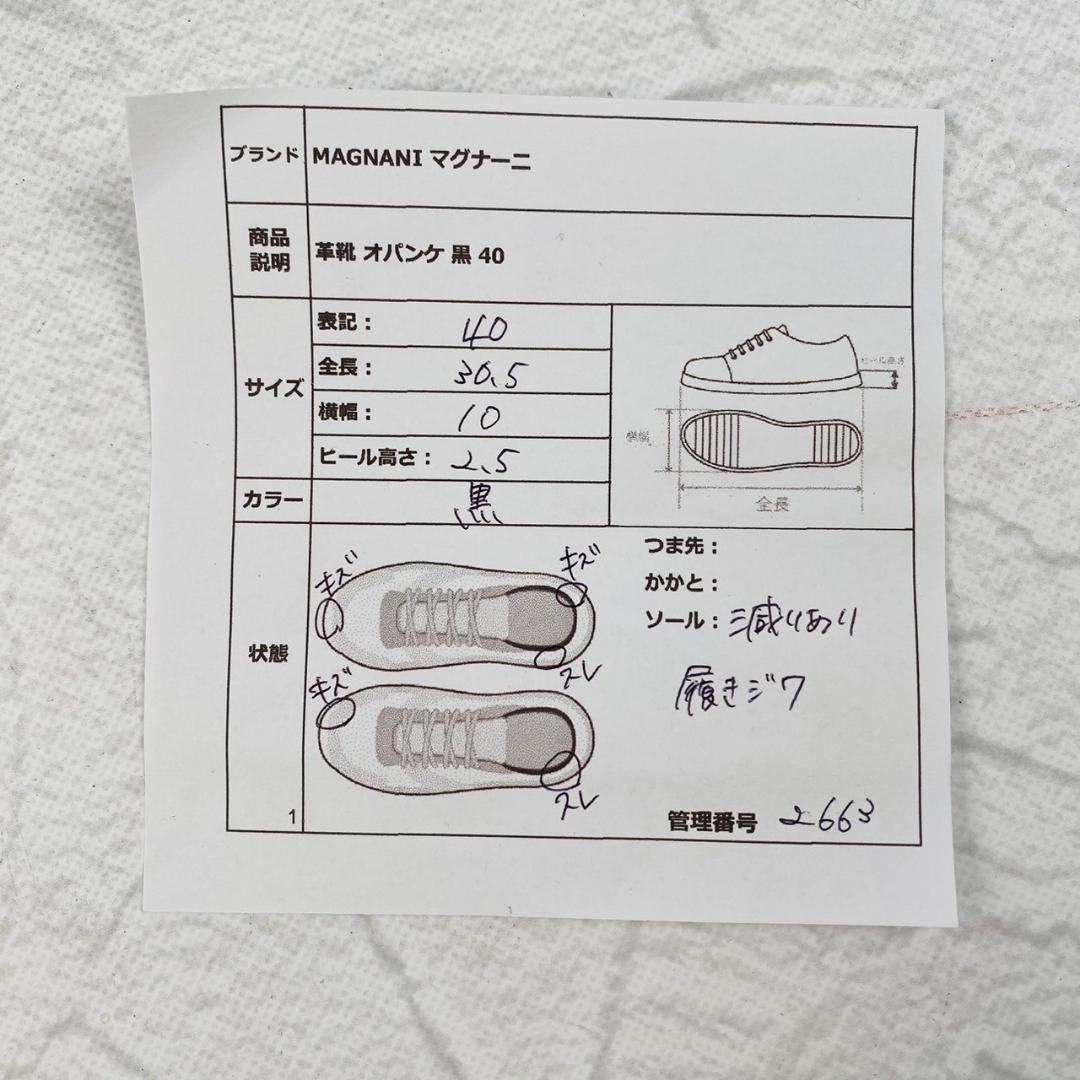 ブランド MAGNANI マグナーニ
商品説明 革靴 オパンケ 黒 40
サイズ
表記： 40
全長： 30.5
横幅： 10
ヒール高さ： 2.5
ヒール高さ
横幅
全長
カラー 黒
状態
キズ
キズ
スレ
キズ
スレ
つま先：
かかと：
ソール： 減りあり
履きジワ
1
管理番号 2663